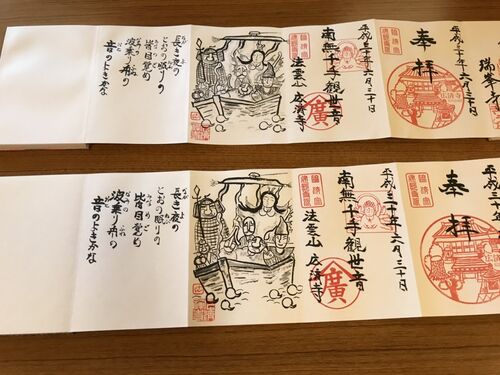 平成三十年六月三十日
奉拝
平成三十年六月三十日
南無千手觀世音
法雲山 広済寺
廣
長き夜の
とおの眠りの
皆目覚め
波乗り舟の
音のよきかな
平成三十年六月三十日
奉拝
平成三十年六月三十日
南無千手觀世音
法雲山 広済寺
廣
長き夜の
とおの眠りの
皆目覚め
波乗り舟の
音のよきかな